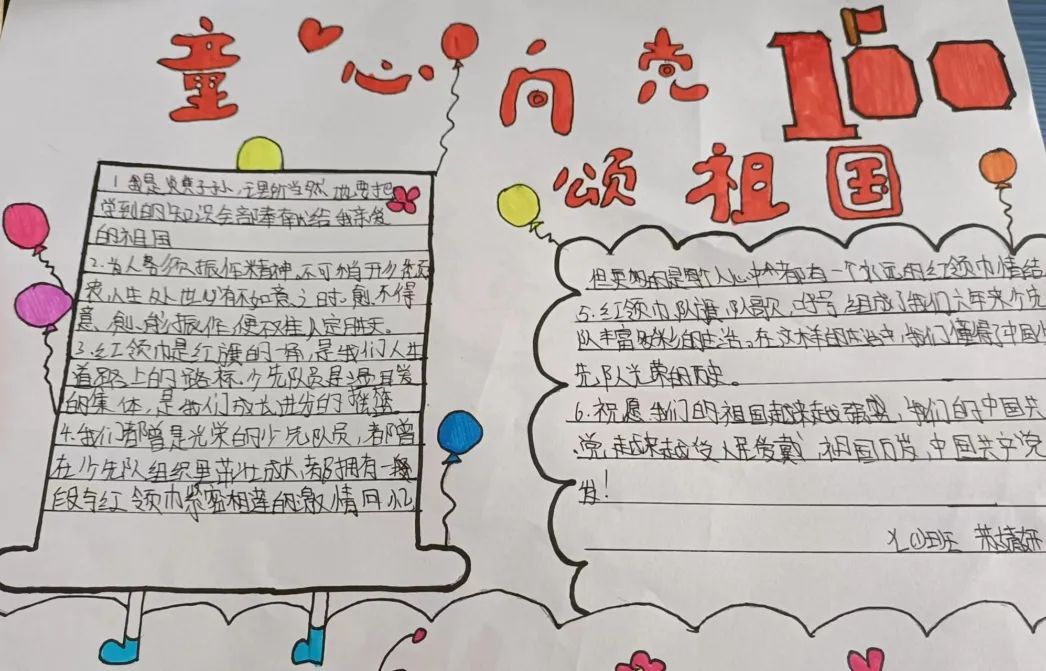 童心向党 100
颂祖国
1.我是炎黄子孙,无理所当然地要把
学到的知识全部奉献给我亲爱
的祖国
2.当人务须振作精神,不可稍
人生处世必有不如意之时。愈不得
意,愈能振作,便不难人定胜天。
3.红领巾是红旗的一角,是我们人生
道路上的路标,少先队员是温且爱
的集体,是我们成长进步的摇篮
4.我们都曾是光荣的少先队员,都曾
在少先队组织里茁壮成长,都拥有一
段与红领巾紧密相连的激情回忆
但更
心中都有一个永远的红领巾情结
5.红领巾、队旗、队歌、呼号,组成了我们六年来少先
队丰富多彩的生活。在这样的生活中,我们懂得了中国少
先队光荣的历史。
6.祝愿我们的祖国越来越强盛,我们的中国共
党,越来越受人民爱戴,祖国万岁,中国共产党
岁!
班